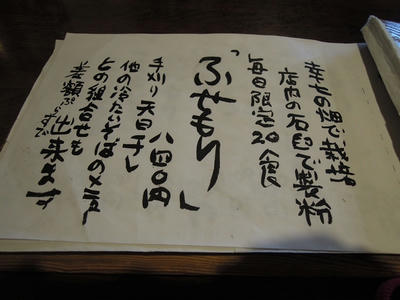 幸七の畑で栽培
店内の石臼で製粉
毎日限定20食
「ふせもり」
八四〇円
手刈り天日干し
他の冷たいそばのメニュー
との組合せも
出来ます